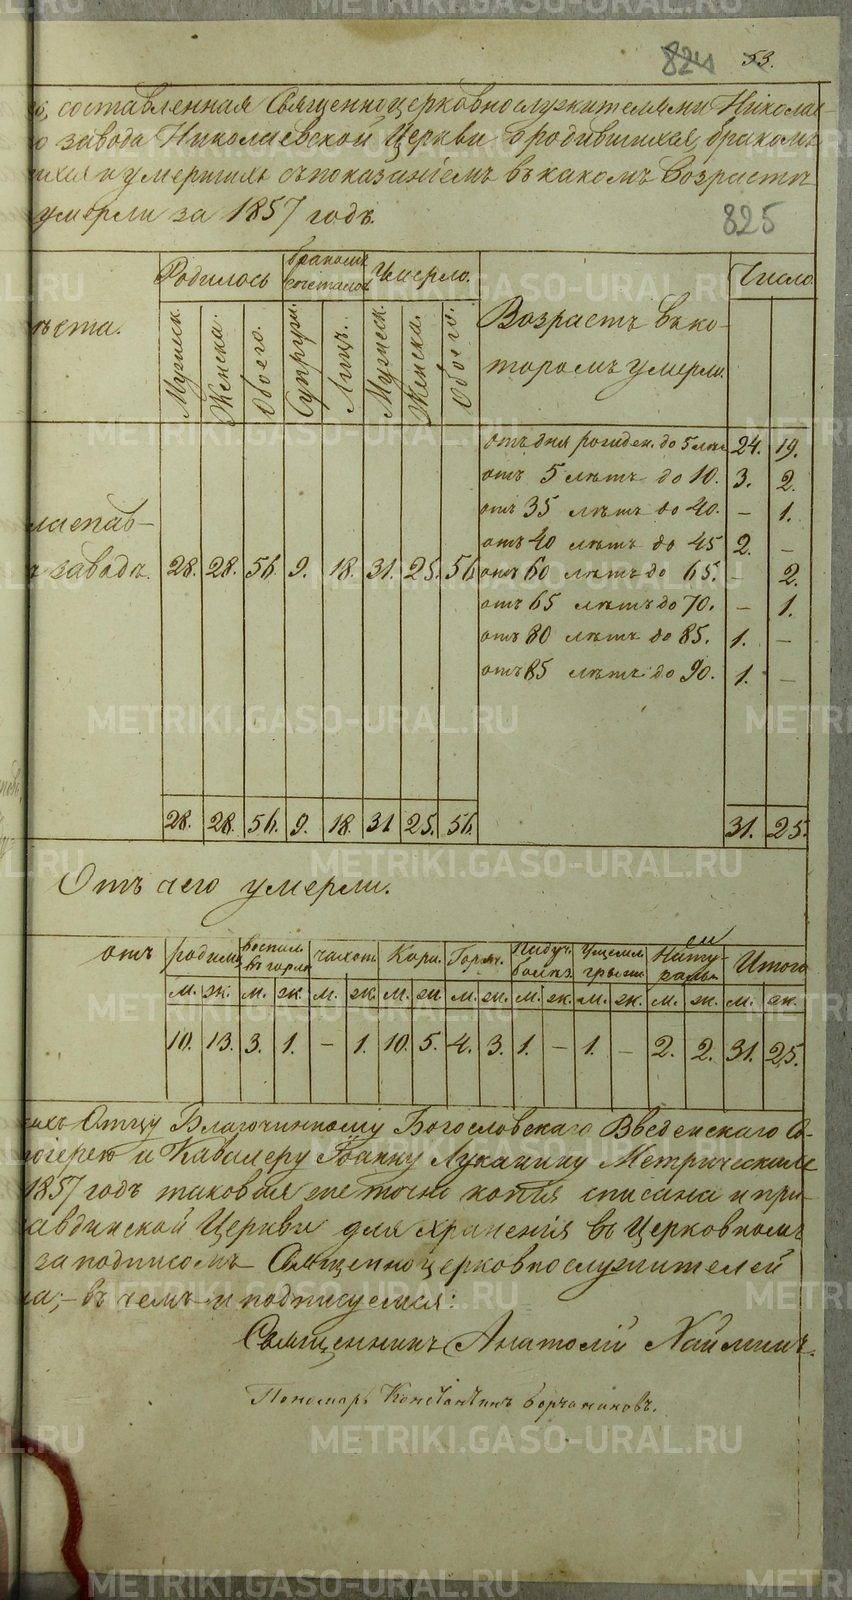 824 53.
составленная Священноцерковнослужителями Николае-
завода Николаевской Церкви о родившихся, бракомъ
и умершихъ съ показаніемъ въ какомъ возрастѣ
умерли за 1857 годъ.
825
Родилось бракомъ сочеталось Умерло. Число
ѣста. Мужеск. Женска. Обоего. Супруж. Лицъ. Мужеск. Женска. Обоего. Возрастъ въ ко-
торомъ умерли.
отъ дня рожден. до 5 лѣт 24. 19.
отъ 5 лѣтъ до 10. 3. 2.
отъ 35 лѣтъ до 40. – 1.
отъ 40 лѣтъ до 45 2. –
заводѣ. 28. 28. 56. 9. 18. 31. 25. 56 отъ 60 лѣтъ до 65. – 2.
отъ 65 лѣтъ до 70. – 1.
отъ 80 лѣтъ до 85. 1. –
отъ 85 лѣтъ до 90. 1. –
28. 28. 56. 9. 18. 31 25. 56. 31. 25.
Отъ чего умерли.
отъ родимч воспал. въ горлѣ чахот. Кори. Горяч. Падуч. болѣз. Ущемл. грыжи Натуральн Итого
м. ж. м. ж. м. ж. м. ж. м. ж. м. ж. м. ж. м. ж. м. ж.
10. 13. 3. 1. – 1. 10. 5. 4. 3. 1. – 1. – 2. 2. 31. 25.
Отцу Благочинному Богословскаго Введенскаго Со-
и Кавалеру Іоанну Луканину Метрическихъ
1857 годъ таковая же точно копія списана и при-
Церкви для храненія въ Церковномъ
за подписомъ Священноцерковнослужителей
въ чемъ и подписуемся:
Священникъ Анатолій
Пономарь Константинъ
METRIKI.GASO-URAL.RU